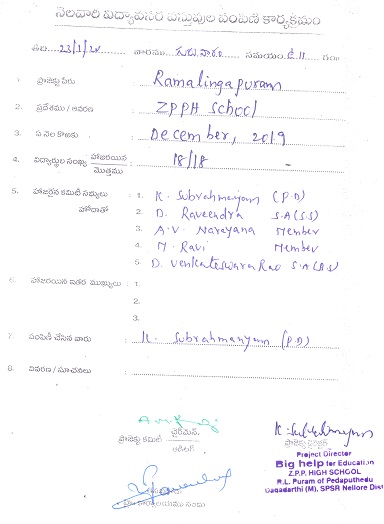 నెలవారి విద్యావసర వస్తువుల పంపిణి కార్యక్రమం
తేది 23/1/20 వారము గురువారం సమయం ఉ 11 గం॥
1. ప్రాజెక్టు పేరు Ramalingapuram
2. ప్రదేశము / ఆవరణ ZPPH School
3. ఏ నెల కొఱకు December, 2019
4. విద్యార్థుల సంఖ్య హాజరయిన / మొత్తము 18/18
5. హాజరైన కమిటి సభ్యులు హోదాతో : 1. K. Subrahmanyam (P.D)
2. D. Raveendra S.A (S.S)
3. A.V. Narayana Member
4. M. Ravi Member
5. D. Venkateswara Rao S.A (B.S)
6. హాజరయిన ఇతర ముఖ్యులు : 1.
2.
3.
7. పంపిణీ చేసిన వారు K. Subrahmanyam (P.D)
8. వివరణ / సూచనలు
ప్రాజెక్టు కమిటి చైర్‌మెన్
ఆడిటర్
K. Subrahmanyam
ప్రాజెక్టు డైరెక్టర్
Project Director
Big help for Education
Z.P.P. HIGH SCHOOL
R.L. Puram of Pedaputhedu
Dagadarthi (M), SPSR Nellore Dist